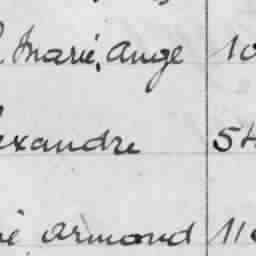 Marie, Ange 10
exandre 54
ie Armand 11